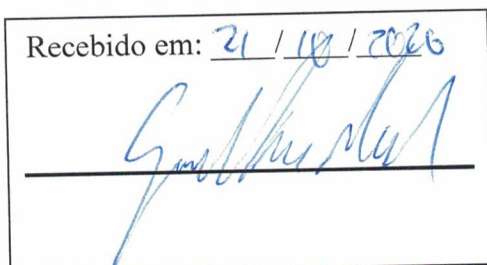 Recebido em: 21 / 10 / 2020